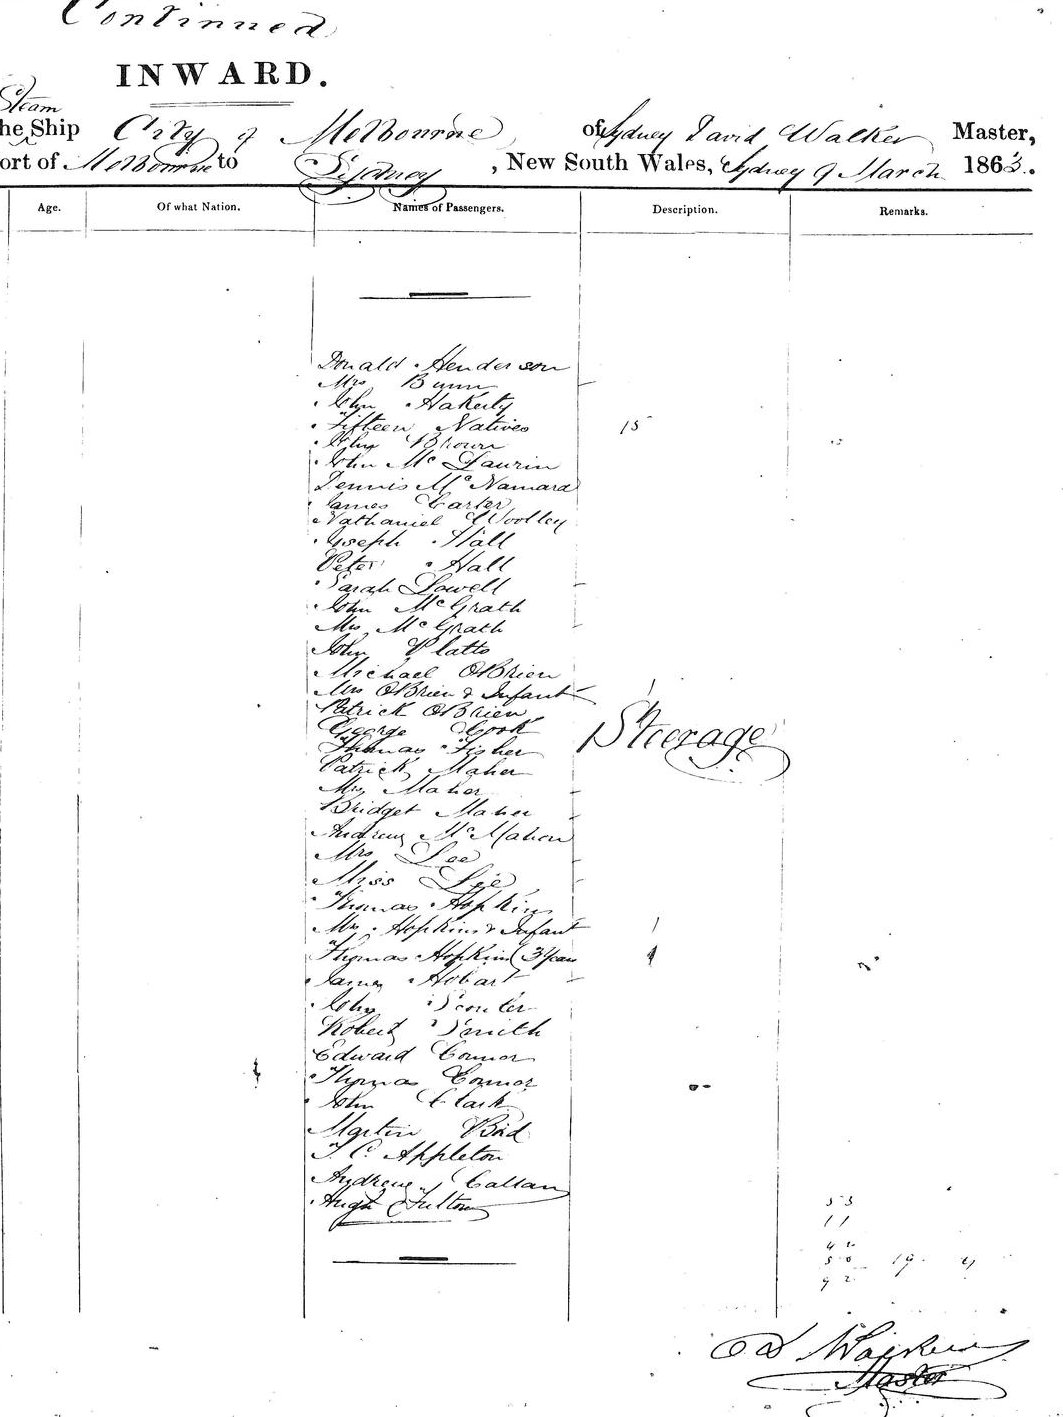 Continued
INWARD.
Steam
he Ship City of Melbourne of Sydney David Walker Master,
ort of Melbourne to Sydney, New South Wales, Sydney 9 March 1863.
Age. Of what Nation. Names of Passengers. Description. Remarks.
Donald Henderson
Mrs Bunn
John Hakerty
Fifteen Natives 15
John Brown
John McLaurin
Dennis McNamara
James Carter
Nathaniel Woolley
Joseph Hall
Peter Hall
Sarah Lowell
John McGrath
Mrs McGrath
John Platts
Michael OBrien
Mrs OBrien & Infant 1
Patrick OBrien
George Cook
Steerage
Thomas Fisher
Patrick Maher
Mrs Maher
Bridget Maher
Andrew McMahon
Mrs Lee
Miss Lee
Thomas Hopkins
Mrs Hopkins & Infant 1
Thomas Hopkins (3 Years 1
James Hobart
John
Robert Smith
Edward Connor
Thomas Connor
John Clark
Martin
T. C. Appleton
Andrew Callan
Hugh Fulton
53
11
42
50 19 4
92
D Walker
Master